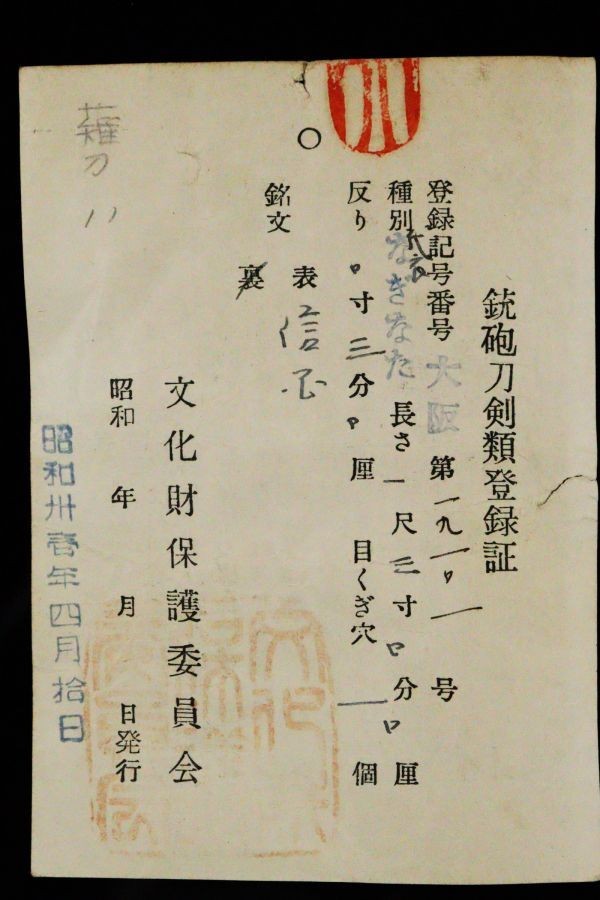 銃砲刀剣類登録証
登録記号番号 大阪 第一九一〇一号
種別 なぎなた 長さ 一尺三寸〇分〇厘
反り 〇寸三分〇厘 目くぎ穴 一個
銘文 表 信
裏
文化財保護委員会
昭和 年 月 日発行
昭和卅壹年四月拾日
薙刀 八